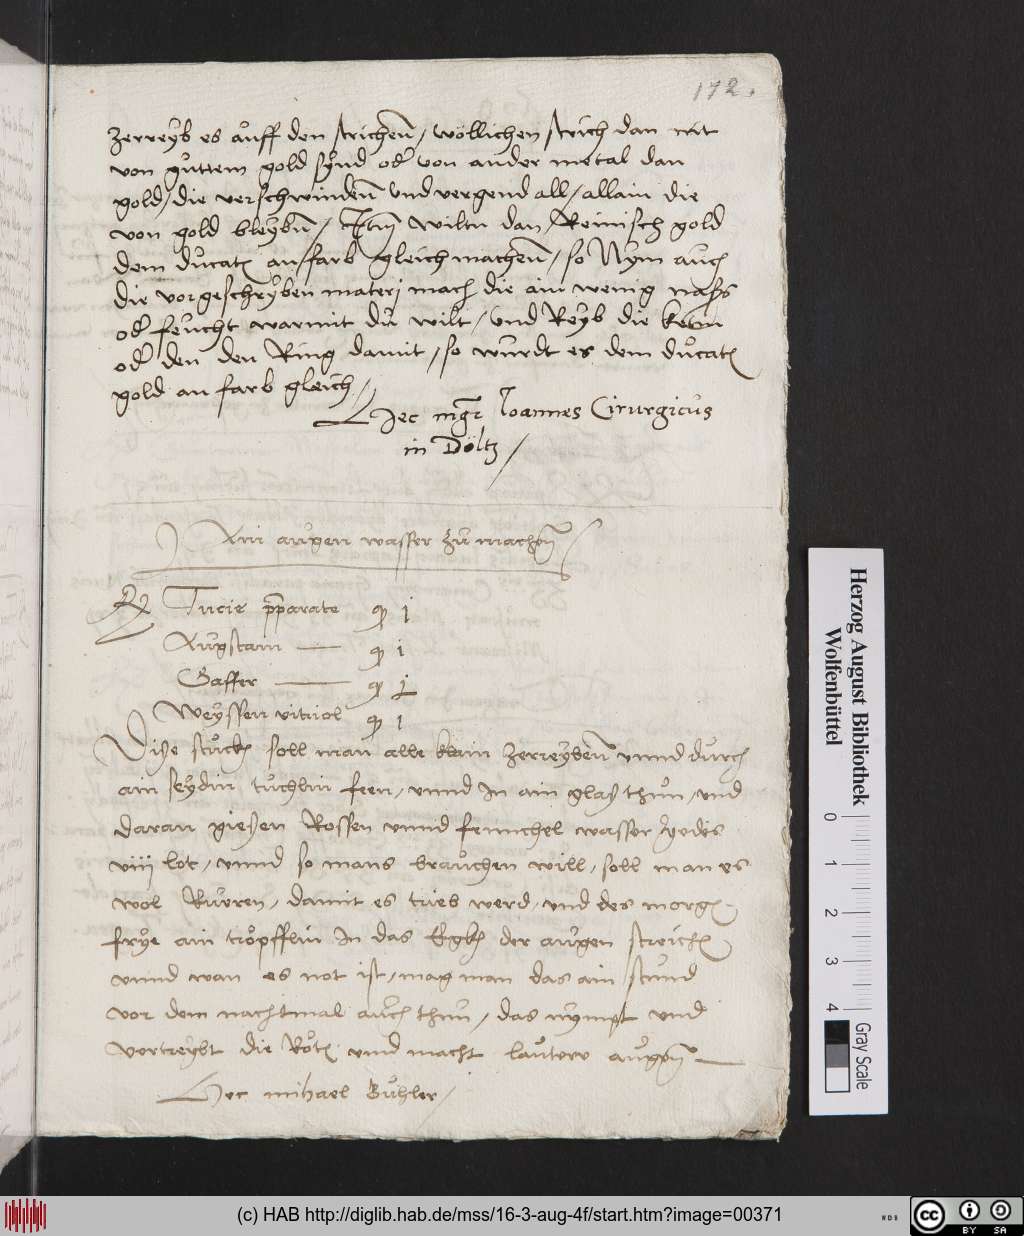 172.
Zerreyb es auff den strichenn / wöllichen strich dan nit
von guttem gold synd od von ander metal dan
gold / die verschwindenn und vergend all / allain die
von gold bleybn / Jtm wiltu dan Reinisch gold
dem ducatn an farb gleich machenn / so Nym auch
die vorgeschryben materj mach die ain wenig naß
od feucht warmit du wilt / und Reyb die
od den den Ring damit / so wurdt es dem ducatn
gold an farb gleich /
Hec mgr Joannes Cirurgicus
in Döltz /
Ain augen wasser zu machen
Rp Tucie pparate i
Augstain — i
Gaffer —
Weyssen vitriol i
Dise stuckh soll man alle klain zerreybenn vnnd durch
ain seydin tuchlin seen, vnnd in ain glaß thun, vnd
daran giesen Rossen vnnd fennchel wasser yedes
viiij lot, vnnd so mans brauchen will, soll man es
wol Rurren, damit es trieb werd, vnd des morges
frye ain tropfflin in das der augen streichn
vnnd wan es not ist, mag man das ain stund
vor dem nachtmal auch thun, das nympt vnd
vertreybt die Röte vnd macht lautere augen —
Hec mihael Buhler /
Herzog August Bibliothek
Wolfenbüttel
0
1
2
3
4
Gray Scale
(c) HAB http://diglib.hab.de/mss/16-3-aug-4f/start.htm?image=00371
WDB
cc
BY SA